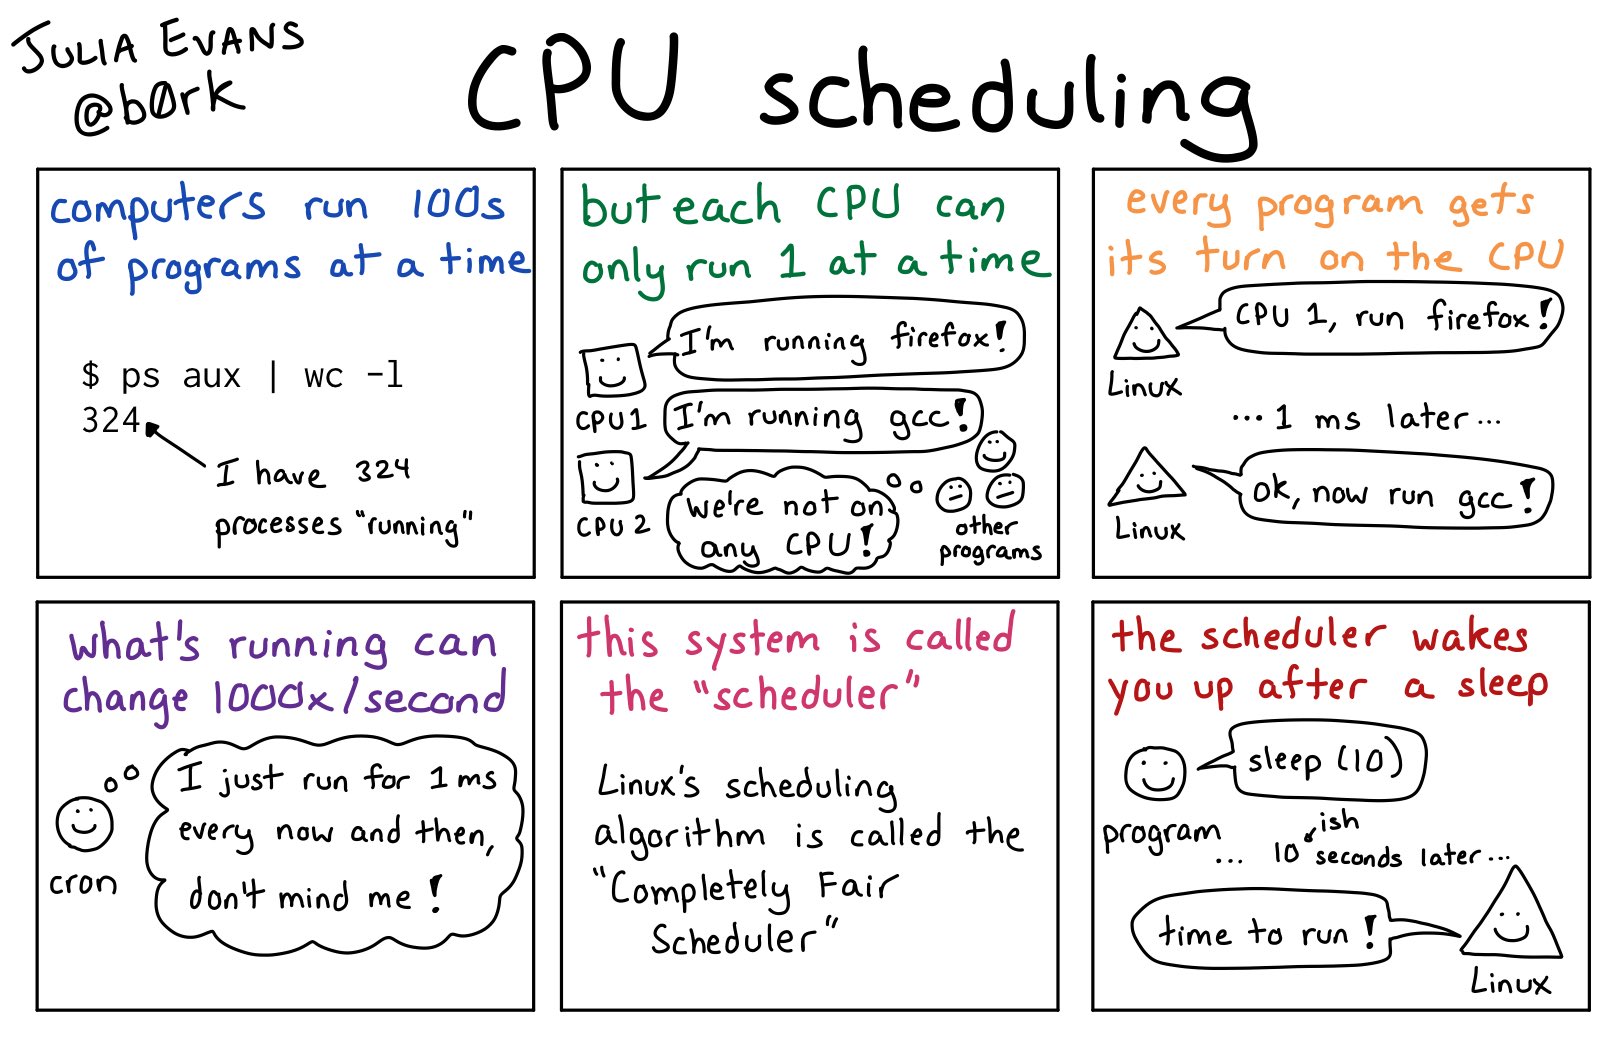 JULIA EVANS
@b0rk
CPU scheduling
computers run 100s
of programs at a time
$ ps aux | wc -l
324
I have 324
processes "running"
but each CPU can
only run 1 at a time
I'm running firefox!
CPU 1
I'm running gcc!
CPU 2
we're not on
any CPU!
other
programs
every program gets
its turn on the CPU
CPU 1, run firefox!
Linux
...1 ms later...
ok, now run gcc!
Linux
what's running can
change 1000x/second
I just run for 1 ms
every now and then,
don't mind me!
cron
this system is called
the "scheduler"
Linux's scheduling
algorithm is called the
"Completely Fair
Scheduler"
the scheduler wakes
you up after a sleep
sleep (10)
program
ish
... 10 seconds later...
time to run!
Linux